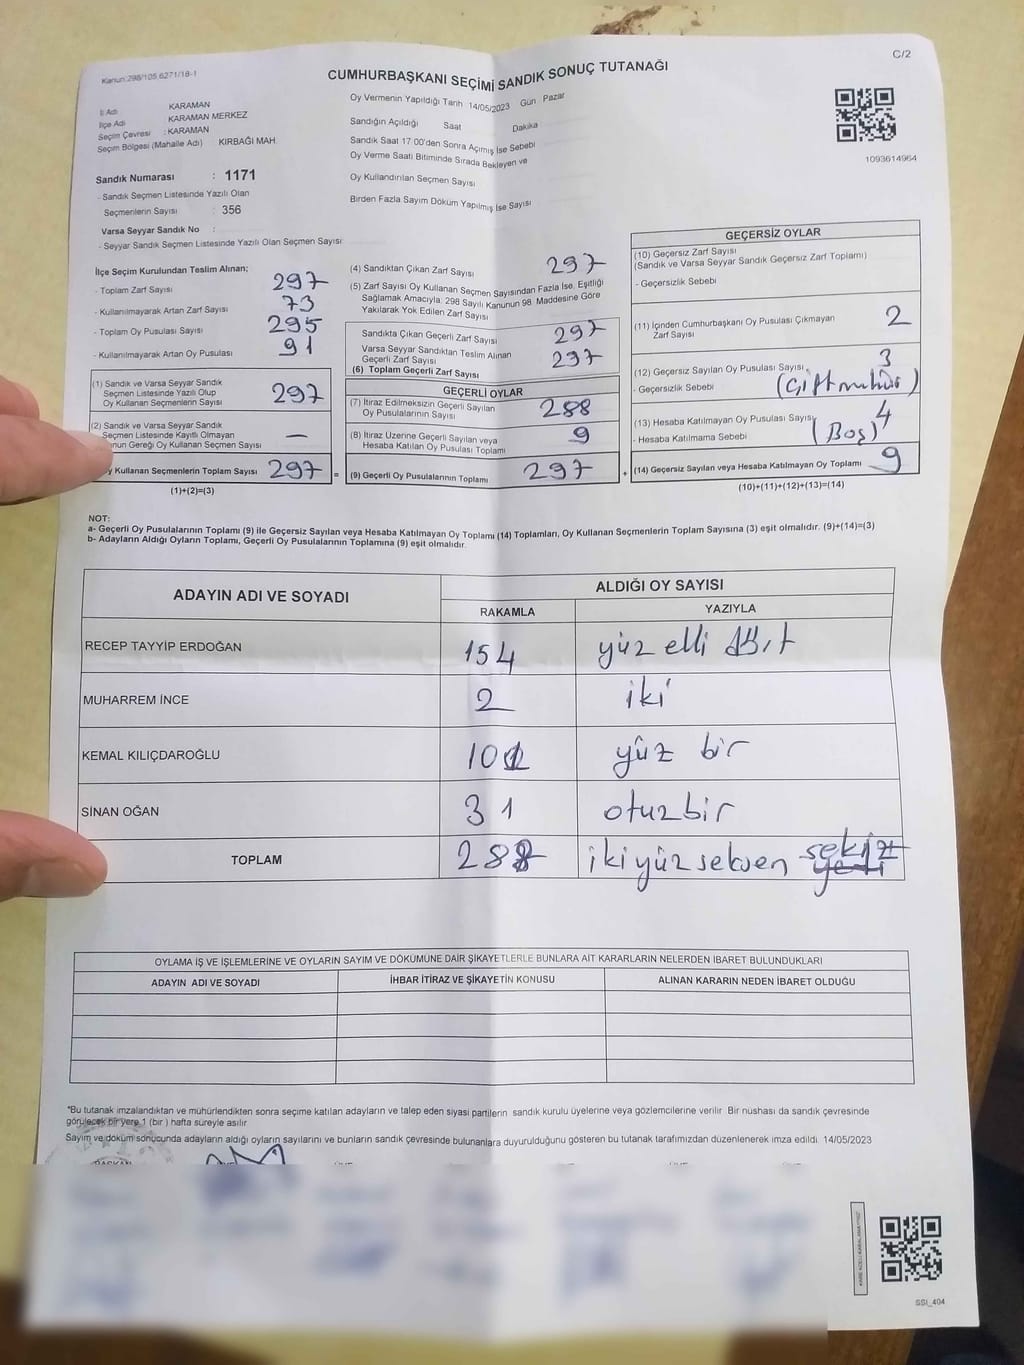 Kanun:298/105,6271/18-1
CUMHURBAŞKANI SEÇİMİ SANDIK SONUÇ TUTANAĞI
C/2
İl Adı KARAMAN
İlçe Adı KARAMAN MERKEZ
Seçim Çevresi : KARAMAN
Seçim Bölgesi (Mahalle Adı) KIRBAĞI MAH.
Oy Vermenin Yapıldığı Tarih 14/05/2023 Gün Pazar
Sandığın Açıldığı Saat Dakika
Sandık Saat 17.00'den Sonra Açımış İse Sebebi
Oy Verme Saati Bitiminde Sırada Bekleyen ve
Oy Kullandırılan Seçmen Sayısı
Birden Fazla Sayım Döküm Yapılmış İse Sayısı
1093614964
Sandık Numarası : 1171
- Sandık Seçmen Listesinde Yazılı Olan
Seçmenlerin Sayısı : 356
Varsa Seyyar Sandık No :
- Seyyar Sandık Seçmen Listesinde Yazılı Olan Seçmen Sayısı:
İlçe Seçim Kurulundan Teslim Alınan;
- Toplam Zarf Sayısı 297
- Kullanılmayarak Artan Zarf Sayısı 73
- Toplam Oy Pusulası Sayısı 295
- Kullanılmayarak Artan Oy Pusulası 91
(1) Sandık ve Varsa Seyyar Sandık
Seçmen Listesinde Yazılı Olup
Oy Kullanan Seçmenlerin Sayısı 297
(2) Sandık ve Varsa Seyyar Sandık
Seçmen Listesinde Kayıtlı Olmayan
Gereği Oy Kullanan Seçmen Sayısı —
Kullanan Seçmenlerin Toplam Sayısı 297 =
(1)+(2)=(3)
(4) Sandıktan Çıkan Zarf Sayısı 297
(5) Zarf Sayısı Oy Kullanan Seçmen Sayısından Fazla İse, Eşitliği
Sağlamak Amacıyla; 298 Sayılı Kanunun 98. Maddesine Göre
Yakılarak Yok Edilen Zarf Sayısı
Sandıkta Çıkan Geçerli Zarf Sayısı 297
Varsa Seyyar Sandıktan Teslim Alınan
Geçerli Zarf Sayısı 297
(6) Toplam Geçerli Zarf Sayısı
GEÇERLİ OYLAR
(7) İtiraz Edilmeksizin Geçerli Sayılan
Oy Pusulalarının Sayısı 288
(8) İtiraz Üzerine Geçerli Sayılan veya
Hesaba Katılan Oy Pusulası Toplamı 9
(9) Geçerli Oy Pusulalarının Toplamı 297 +
GEÇERSİZ OYLAR
(10) Geçersiz Zarf Sayısı
(Sandık ve Varsa Seyyar Sandık Geçersiz Zarf Toplamı)
- Geçersizlik Sebebi
(11) İçinden Cumhurbaşkanı Oy Pusulası Çıkmayan
Zarf Sayısı 2
(12) Geçersiz Sayılan Oy Pusulası Sayısı 3
- Geçersizlik Sebebi (Çift mühür)
(13) Hesaba Katılmayan Oy Pusulası Sayısı 4
- Hesaba Katılmama Sebebi (Boş)
(14) Geçersiz Sayılan veya Hesaba Katılmayan Oy Toplamı 9
(10)+(11)+(12)+(13)=(14)
NOT:
a- Geçerli Oy Pusulalarının Toplamı (9) ile Geçersiz Sayılan veya Hesaba Katılmayan Oy Toplamı (14) Toplamları, Oy Kullanan Seçmenlerin Toplam Sayısına (3) eşit olmalıdır. (9)+(14)=(3)
b- Adayların Aldığı Oyların Toplamı, Geçerli Oy Pusulalarının Toplamına (9) eşit olmalıdır.
ADAYIN ADI VE SOYADI ALDIĞI OY SAYISI
RAKAMLA YAZIYLA
RECEP TAYYİP ERDOĞAN 154 yüz elli dört
MUHARREM İNCE 2 iki
KEMAL KILIÇDAROĞLU 101 yüz bir
SİNAN OĞAN 31 otuzbir
TOPLAM 288 ikiyüz seksen sekiz yedi
OYLAMA İŞ VE İŞLEMLERİNE VE OYLARIN SAYIM VE DÖKÜMÜNE DAİR ŞİKAYETLERLE BUNLARA AİT KARARLARIN NELERDEN İBARET BULUNDUKLARI
ADAYIN ADI VE SOYADI İHBAR İTİRAZ VE ŞİKAYETİN KONUSU ALINAN KARARIN NEDEN İBARET OLDUĞU
*Bu tutanak imzalandıktan ve mühürlendikten sonra seçime katılan adayların ve talep eden siyasi partilerin sandık kurulu üyelerine veya gözlemcilerine verilir. Bir nüshası da sandık çevresinde
görülecek bir yere 1 (bir ) hafta süreyle asılır.
Sayım ve döküm sonucunda adayların aldığı oyların sayılarını ve bunların sandık çevresinde bulunanlara duyurulduğunu gösteren bu tutanak tarafımızdan düzenlenerek imza edildi. 14/05/2023
BAŞKAN
SSI_404